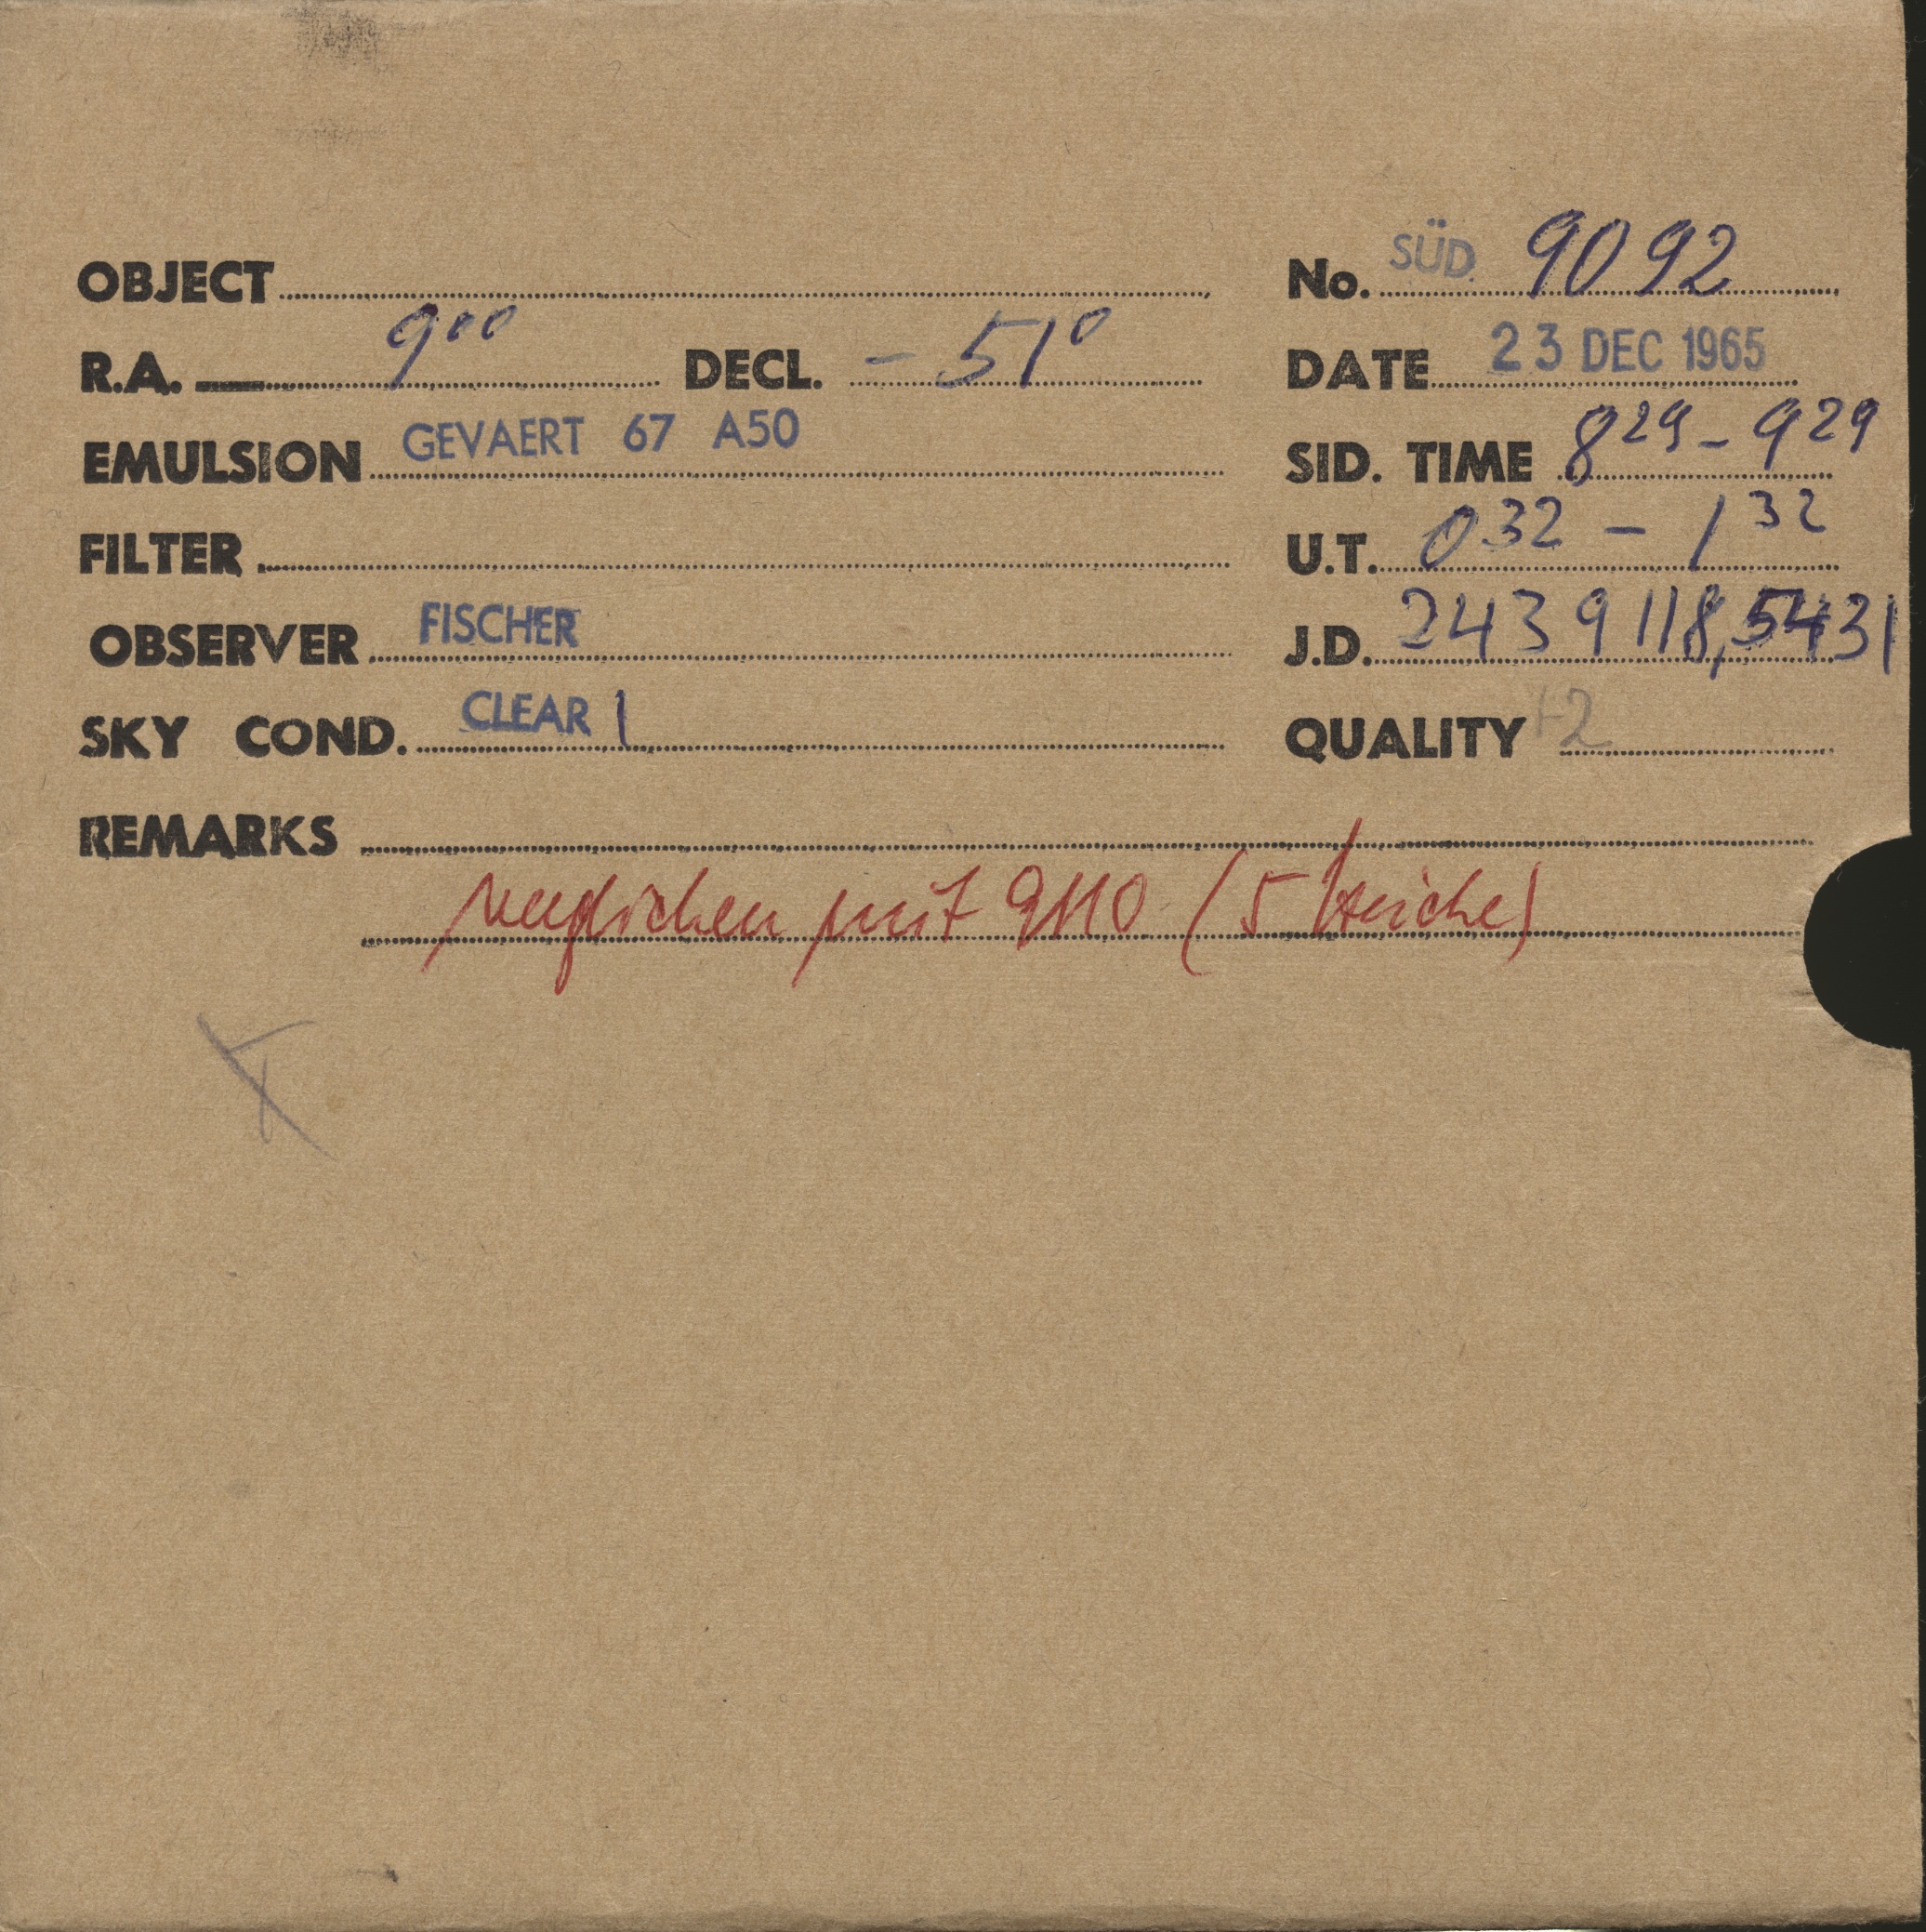 OBJECT
No. SÜD. 9092
R.A. 9⁰⁰ DECL. - 51°
DATE 23 DEC 1965
EMULSION GEVAERT 67 A50
SID. TIME 8²⁹ - 9²⁹
FILTER
U.T. 0³² - 1³²
OBSERVER FISCHER
J.D. 2439118,5431
SKY COND. CLEAR 1
QUALITY 2
REMARKS
verglichen mit 9110 (5 )